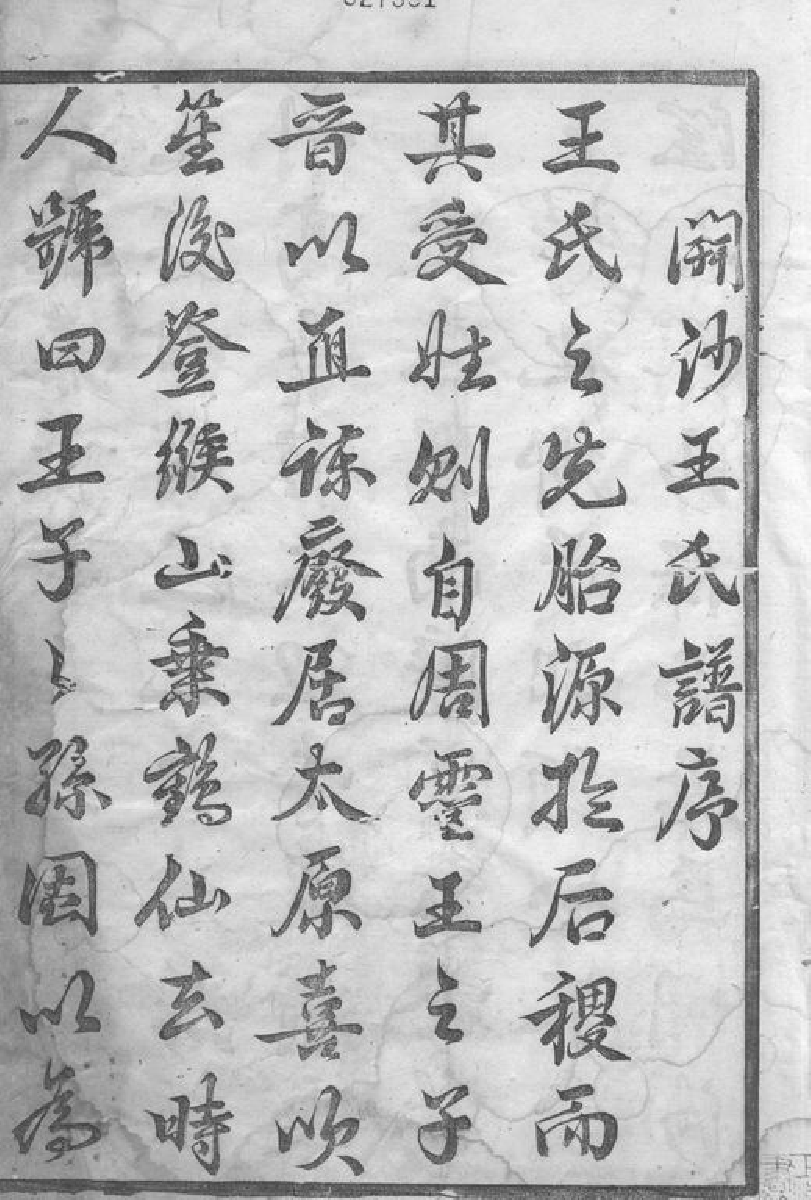 開沙王氏譜序
王氏之先胎源於后稷而
其受姓則自周靈王之子
晋以直諫廢居太原喜吹
笙後登緱山乗鶴仙去時
人號曰王子〻孫因以為